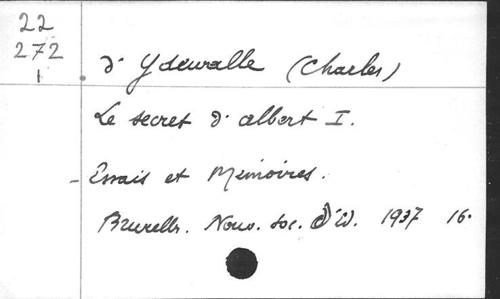 22
272
1
d'Ydewalle (Charles)
Le secret d'albert I.
- Essais et Mémoires.
Bruxelles. Nouv. soc. d'éd. 1937 16.